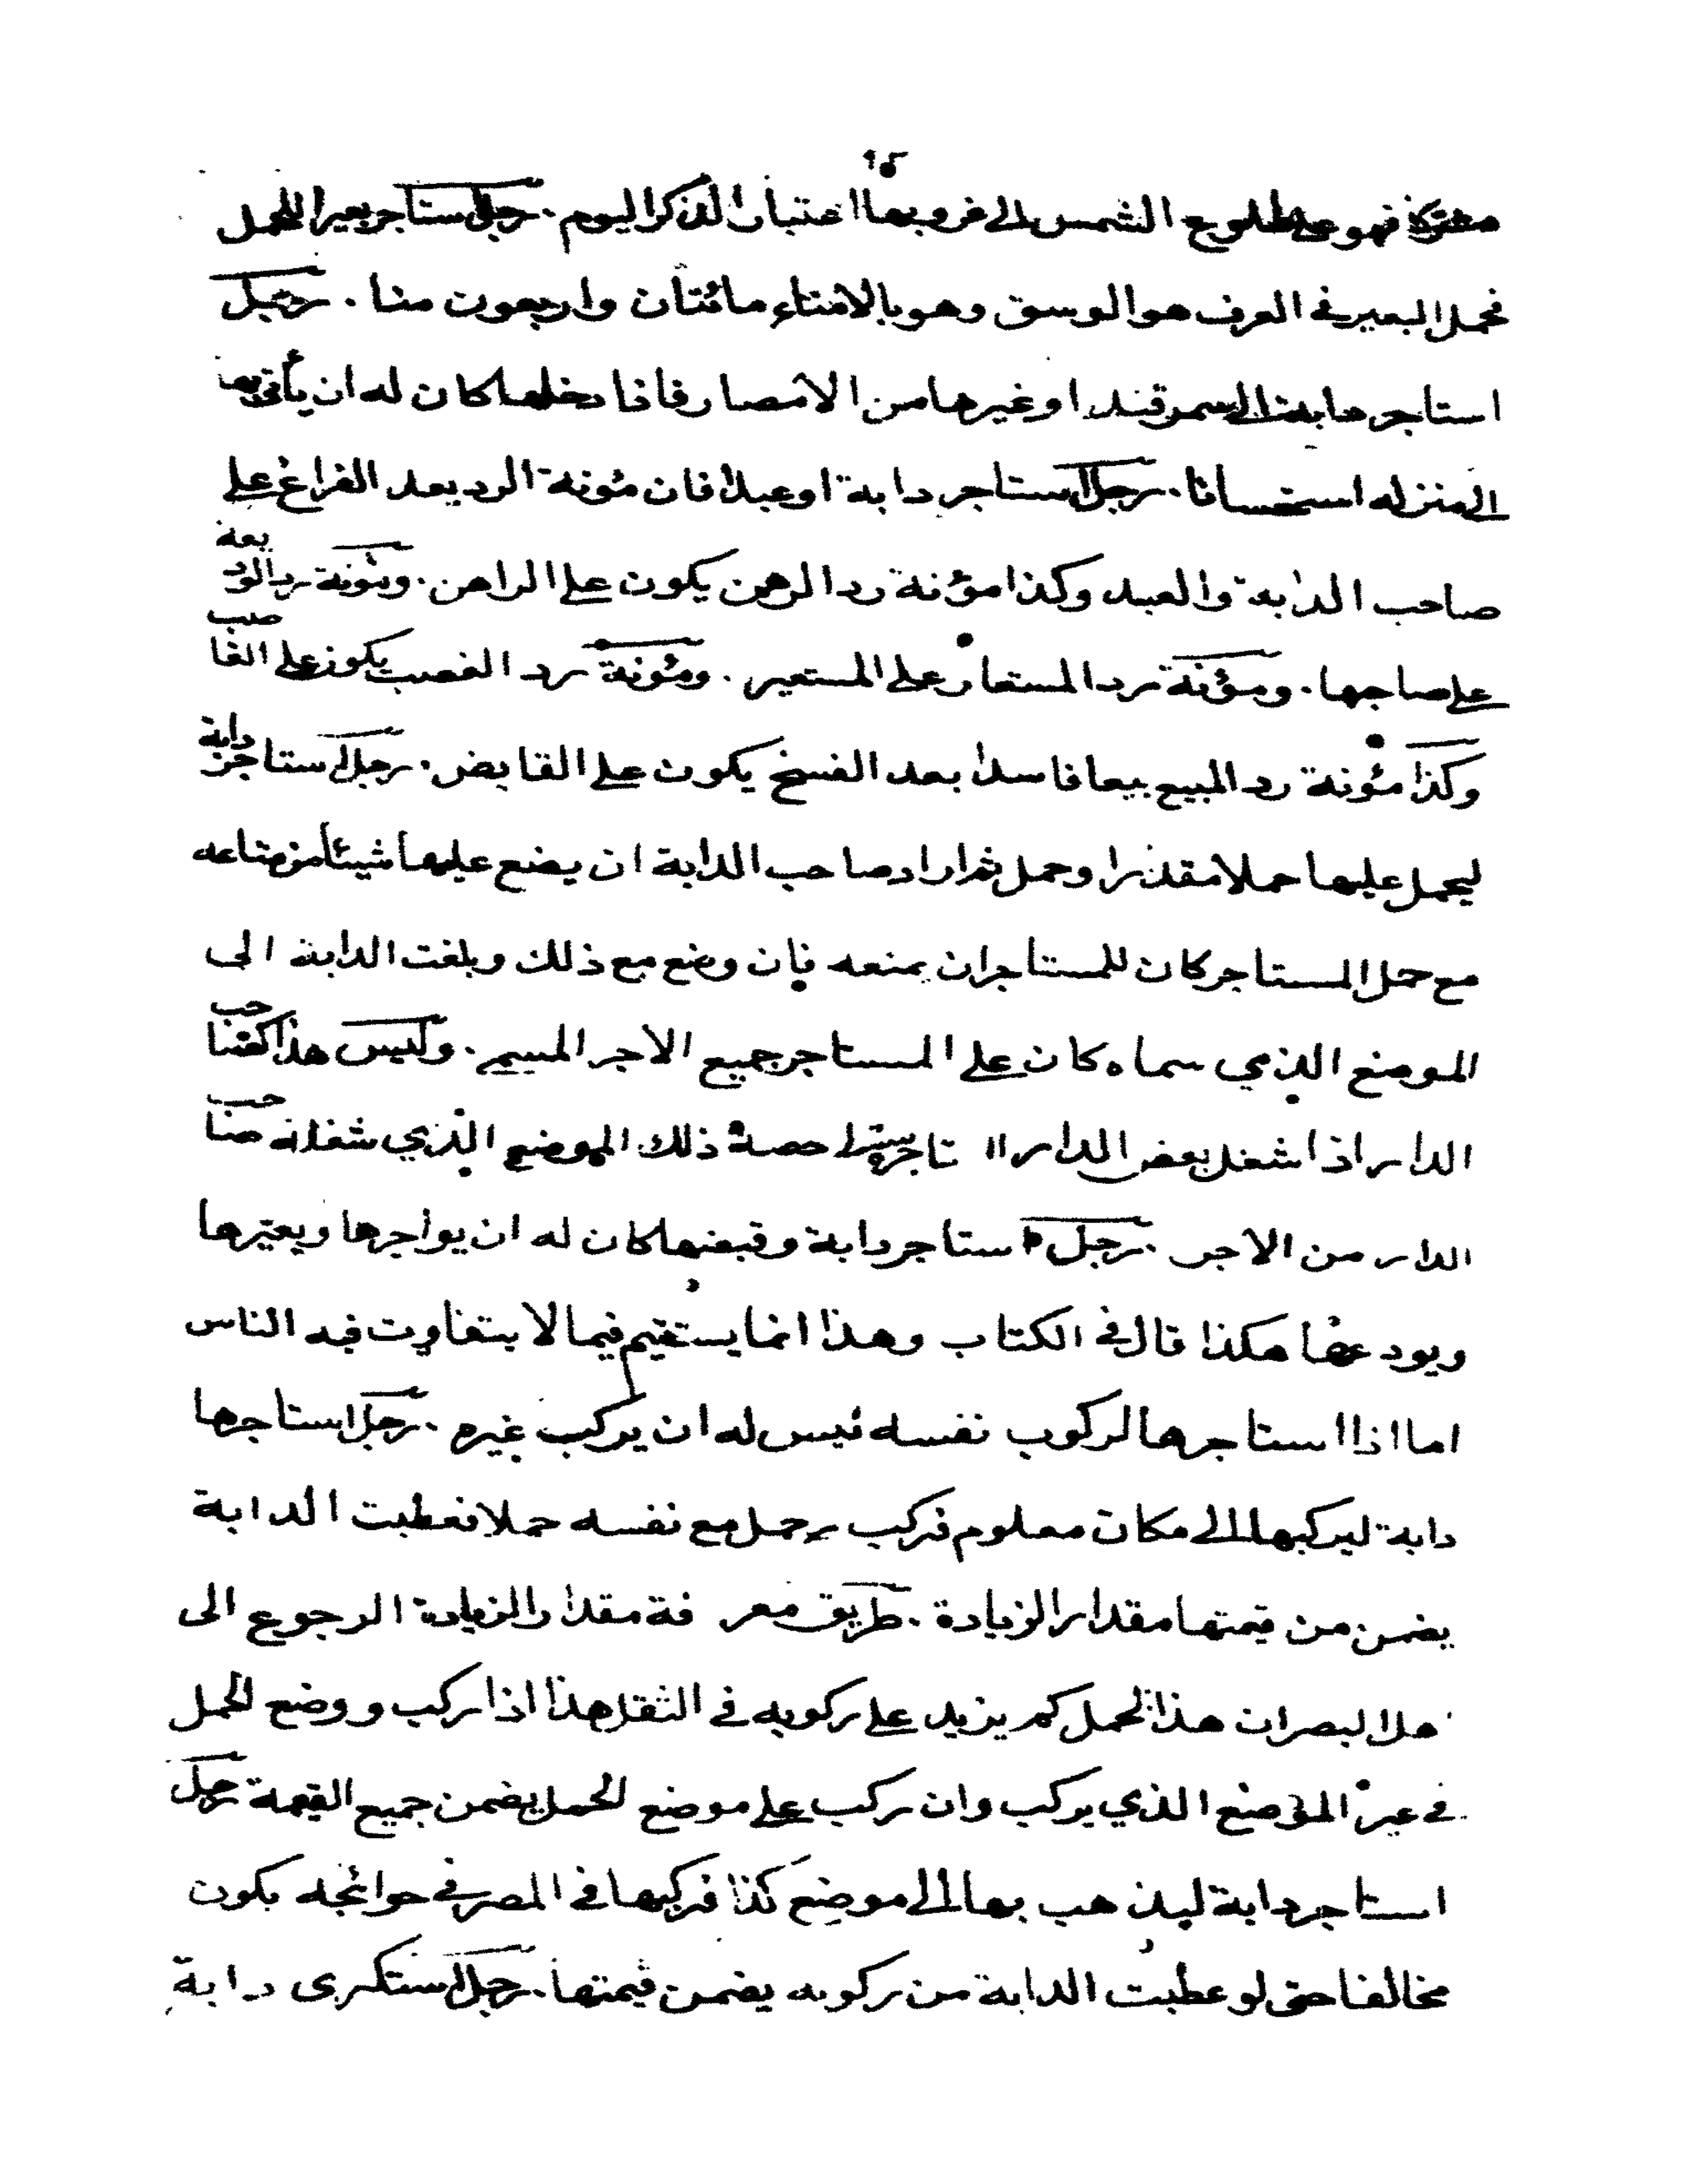 مشتركا فهو على طلوع الشمس الى غروبها اعتبارا لذكر اليوم . رجل استاجر بعيرا للحمل
فحمل البعير في العرف هو الوسق وهو بالامناء مائتان واربعون منا . رجل
استاجر دابة الى سمرقند او غيرها من الامصار فاذا دخلها كان له ان يأتي بها
الى منزله استحسانا . رجل استاجر دابة او عبدا فان مئونة الرد بعد الفراغ على
صاحب الدابة والعبد وكذا مؤنة رد الرهن يكون على الراهن . ومئونة رد الوديعة
على صاحبها . ومؤنة رد المستعار على المستعير . ومئونة رد الغصب يكون على الغاصب
وكذا مئونة رد المبيع بيعا فاسدا بعد الفسخ يكون على القابض . رجل استاجر دابة
ليحمل عليها حملا مقدرا وحمل ثم اراد صاحب الدابة ان يضع عليها شيئا من متاعه
مع حمل المستاجر كان للمستاجران يمنعه فان وضع مع ذلك وبلغت الدابة الى
الموضع الذي سماه كان على المستاجر جميع الاجر المسمى . وليس هذا كصاحب
الدار اذا شغل بعض الدار حصة ذلك الموضع الذي شغله صاحب
الدار من الاجر . رجل استاجر دابة وقبضها كان له ان يواجرها ويعيرها
ويودعها هكذا قال في الكتاب وهذا انما يستقيم فيما لا يتفاوت فيه الناس
اما اذا استاجرها لركوب نفسه ليس له ان يركب غيره . رجل استاجرها
دابة ليركبها الى مكان معلوم فركب وحمل مع نفسه حملا فعطبت الدابة
يضمن من قيمتها مقدار الزيادة . طريق معرفة مقدار الزيادة الرجوع الى
اهل البصران هذا الحمل كم يزيد على ركوبه في الثقل هذا اذا ركب ووضع الحمل
في غير الموضع الذي يركب وان ركب على موضع الحمل يضمن جميع القيمة رجل
استاجر دابة ليذهب بها الى موضع كذا فركبها في المصر في حوائجه يكون
مخالفا حتى لو عطبت الدابة من ركوبه يضمن قيمتها . رجل استكرى دابة